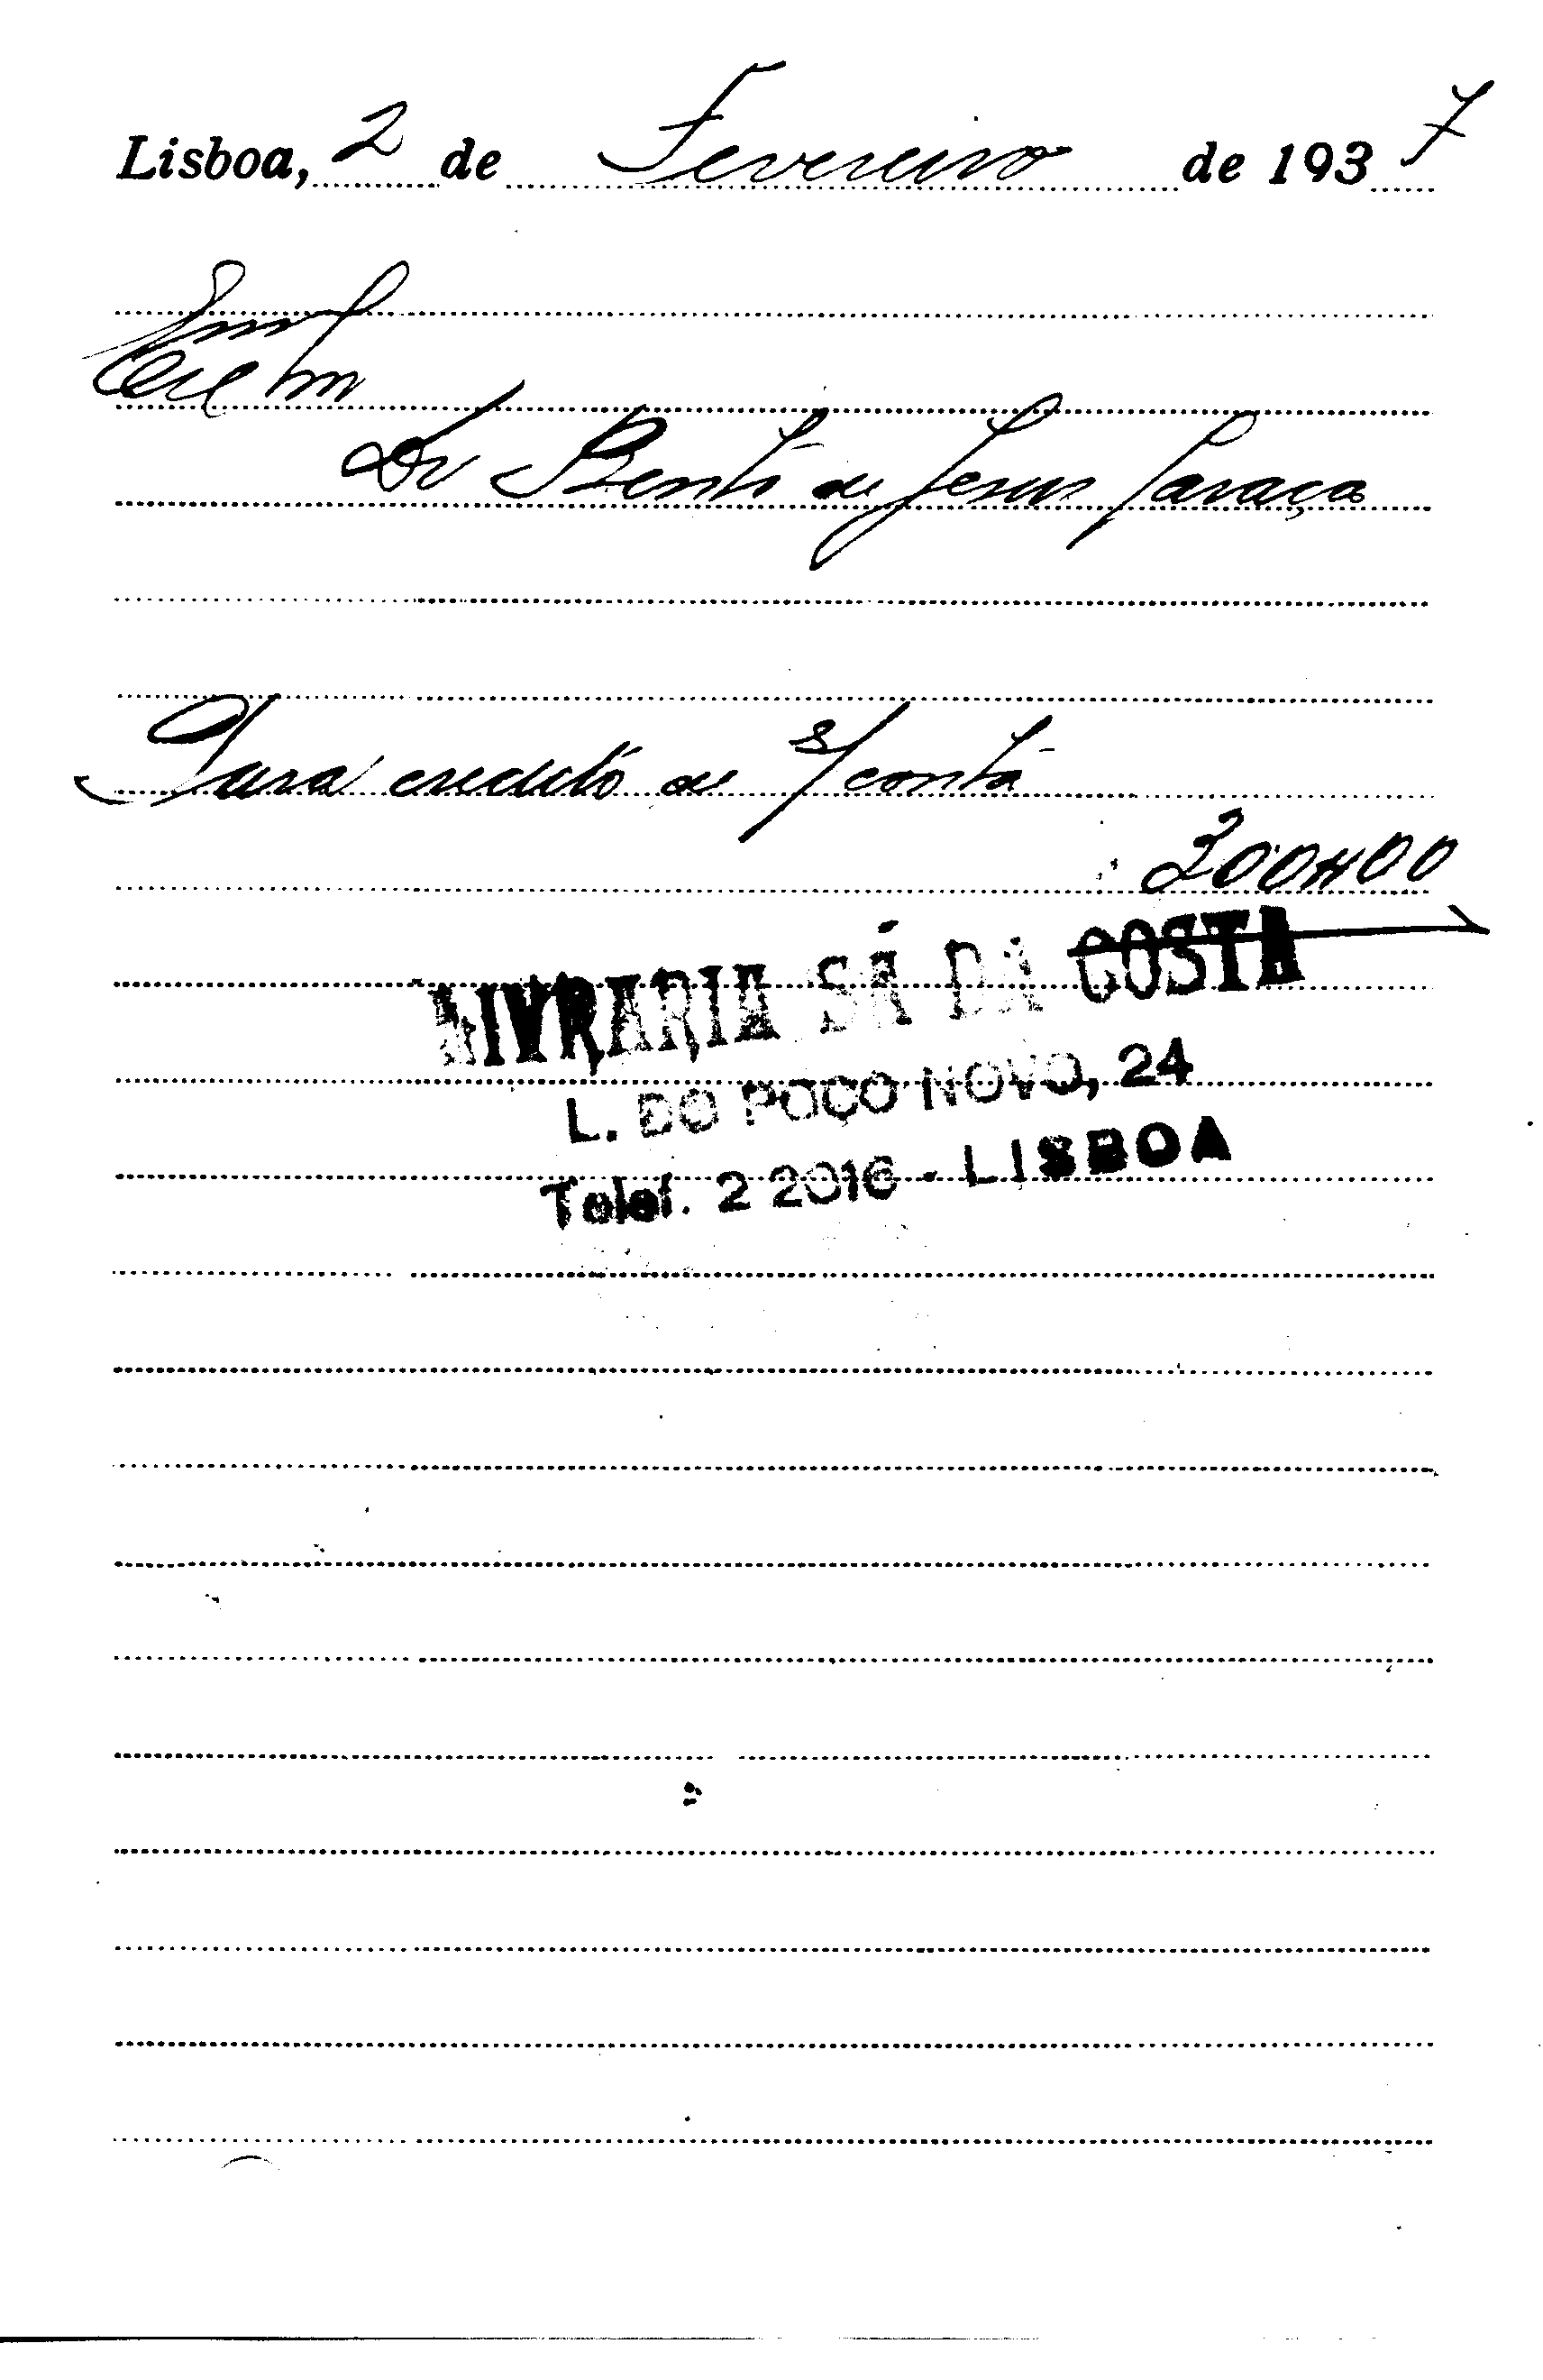 Lisboa, 2 de Fevereiro de 1937
Exmo Snr
Dr Bento de Jesus Caraça
Para credito de s/ conta
300$00
LIVRARIA SÁ DA COSTA
L. DO POÇO NOVO, 24
Telef. 2 2016 - LISBOA